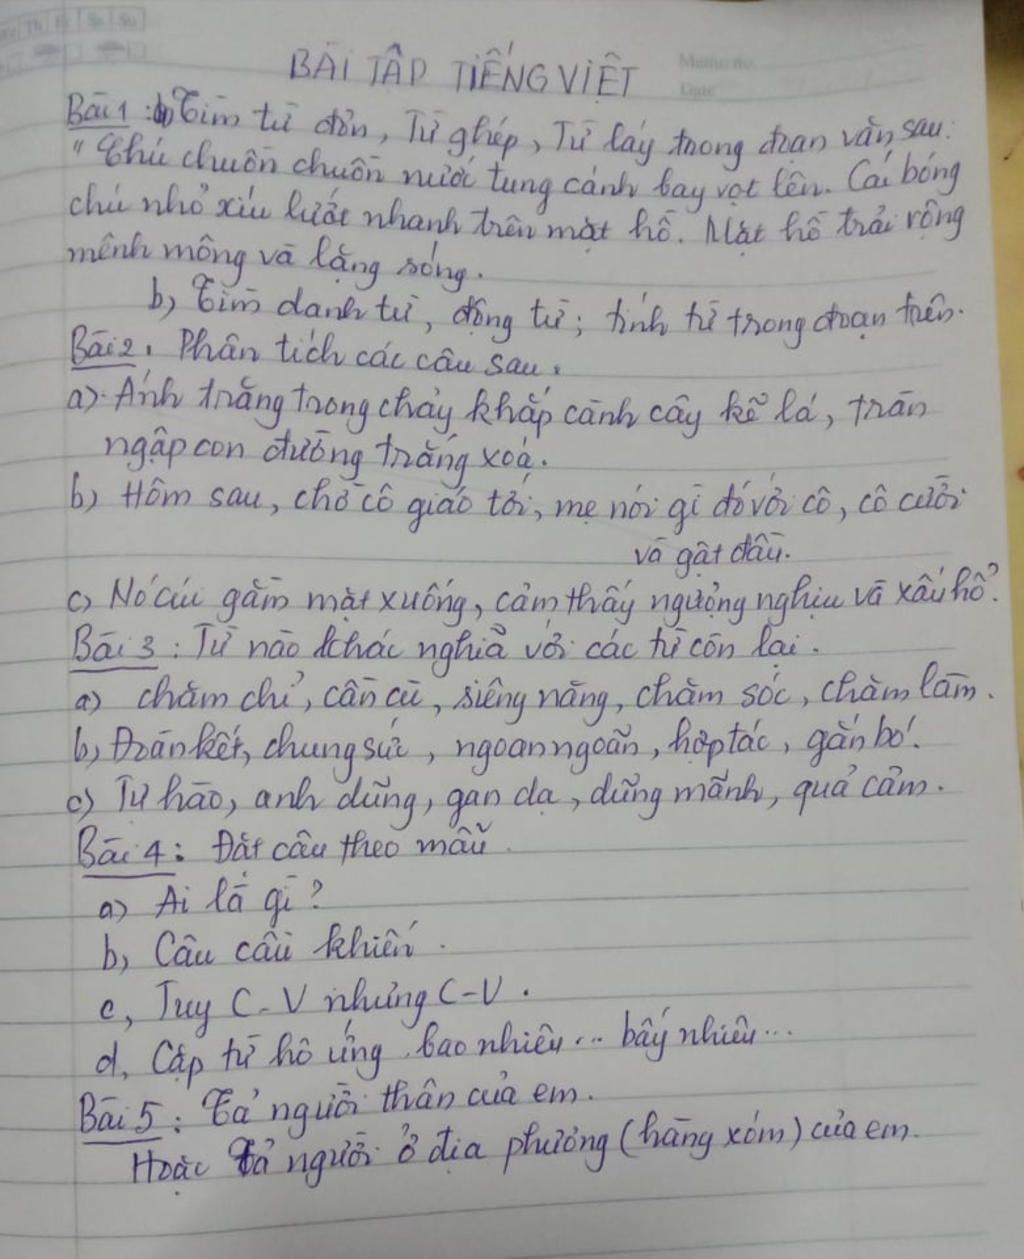 BÀI TẬP TIẾNG VIỆT
Bài 1: a) Tìm từ đơn, Từ ghép, Từ láy trong đoạn văn sau:
"Chú chuồn chuồn nước tung cánh bay vọt lên. Cái bóng
chú nhỏ xíu lướt nhanh trên mặt hồ. Mặt hồ trải rộng
mênh mông và lặng sóng.
b, Tìm danh từ, động từ; tính từ trong đoạn trên.
Bài 2. Phân tích các câu sau.
a). Ánh trăng trong chảy khắp cành cây kẽ lá, tràn
ngập con đường trắng xoá.
b) Hôm sau, chờ cô giáo tới, mẹ nói gì đó với cô, cô cười
và gật đầu.
c) Nó cúi gằm mặt xuống, cảm thấy ngượng nghịu và xấu hổ.
Bài 3: Từ nào khác nghĩa với các từ còn lại.
a) chăm chỉ, cần cù, siêng năng, chăm sóc, chăm làm.
b, Đoàn kết, chung sức, ngoan ngoãn, hợp tác, gắn bó.
c) Tự hào, anh dũng, gan dạ, dũng mãnh, quả cảm.
Bài 4: Đặt câu theo mẫu.
a) Ai là gì?
b, Câu cầu khiến.
c, Tuy C-V nhưng C-V.
d, Cặp từ hô ứng bao nhiêu... bấy nhiêu...
Bài 5: Tả người thân của em.
Hoặc tả người ở địa phương (hàng xóm) của em.